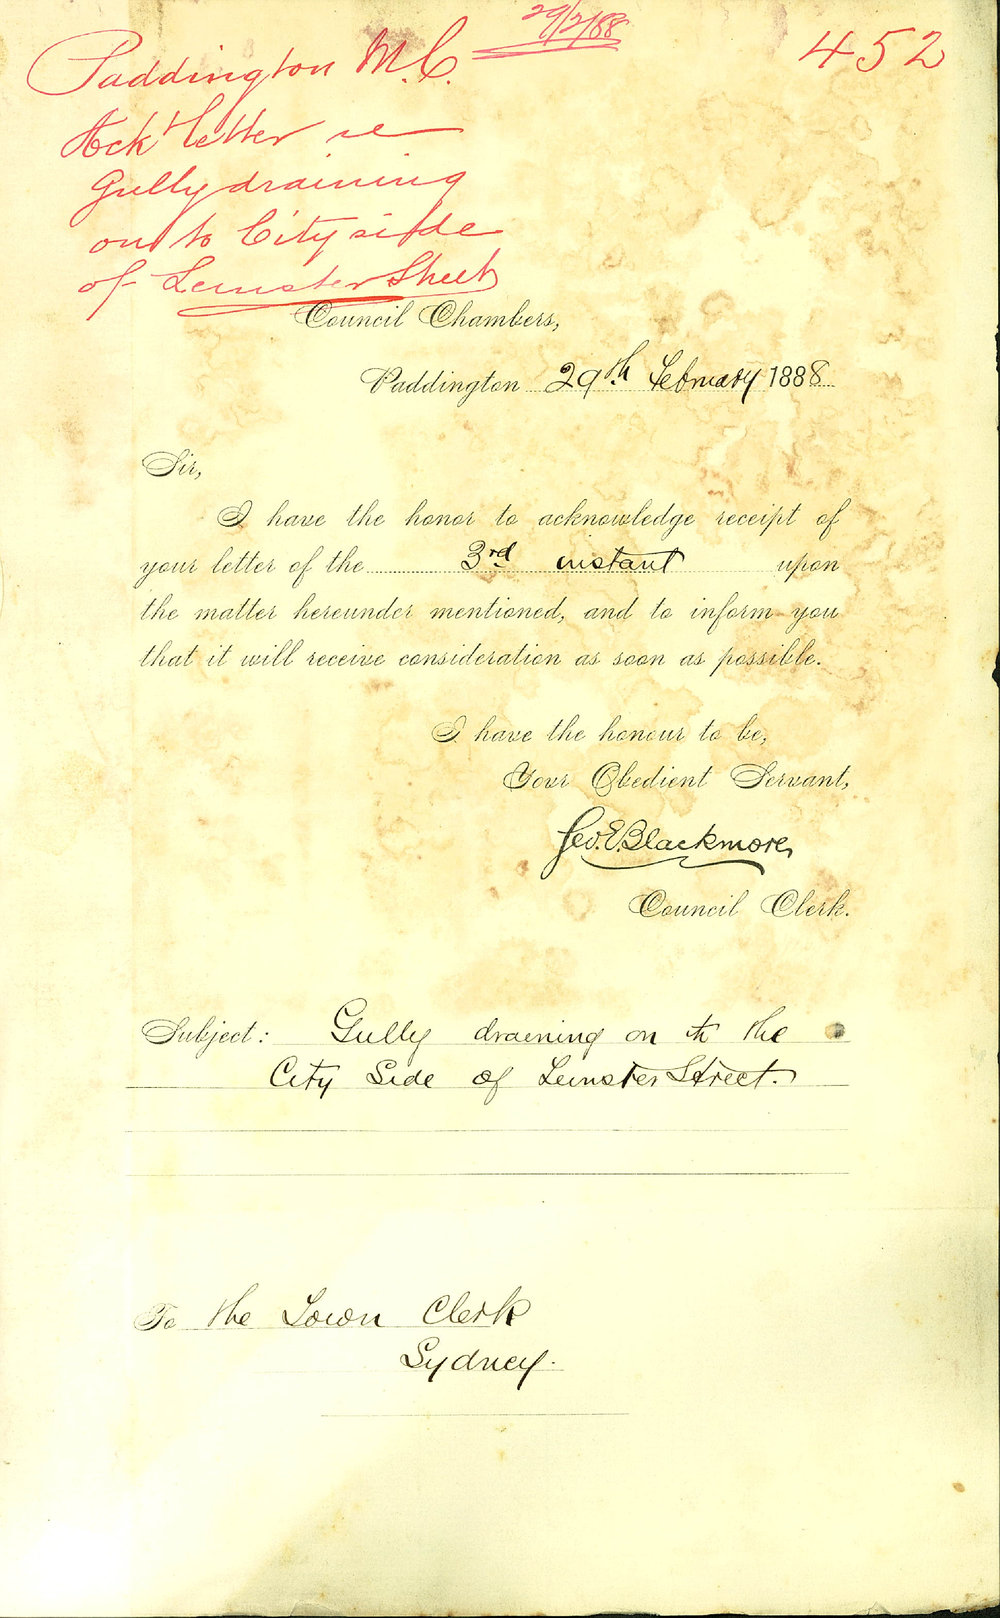 29/2/88
452
Paddington M.C.
Ack't letter re
Gully draining
on to City side
of Leinster Street
Council Chambers,
Paddington 29th February 1888
Sir,
I have the honor to acknowledge receipt of
your letter of the 3rd instant upon
the matter hereunder mentioned, and to inform you
that it will receive consideration as soon as possible.
I have the honour to be,
Your Obedient Servant,
Geo. E. Blackmore,
Council Clerk.
Subject: Gully draining on to the
City Side of Leinster Street.
To the Town Clerk
Sydney.